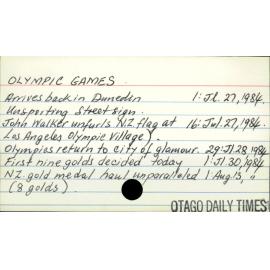 OLYMPIC GAMES.
Arrives back in Dunedin 1: Jl. 27, 1984.
Unsporting Street sign.
John Walker unfurls N.Z flag at 16: Jul. 27, 1984.
Los Angeles Olympic Village).
Olympics return to city of glamour. 29: Jl 28, 1984
First nine golds decided today 1: Jl. 30, 1984
N.Z. gold medal haul unparalleled 1: Aug 13, "
(8 golds).
OTAGO DAILY TIMES